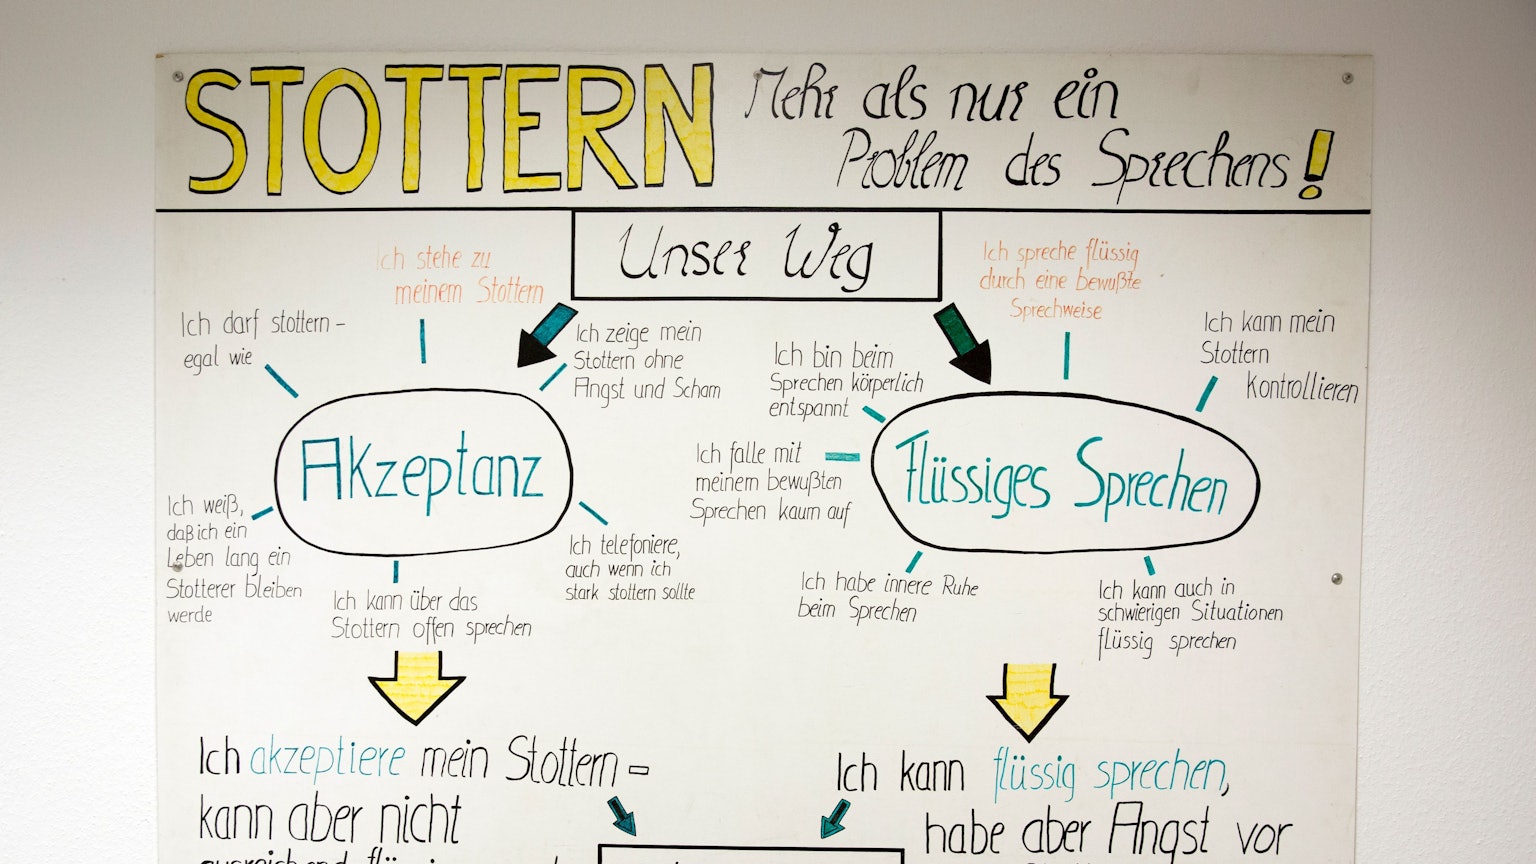 STOTTERN
Mehr als nur ein
Problem des Sprechens!
Unser Weg
Ich stehe zu
meinem Stottern
Ich darf stottern -
egal wie
Ich zeige mein
Stottern ohne
Angst und Scham
Akzeptanz
Ich weiß,
daß ich ein
Leben lang ein
Stotterer bleiben
werde
Ich kann über das
Stottern offen sprechen
Ich telefoniere,
auch wenn ich
stark stottern sollte
Ich spreche flüssig
durch eine bewußte
Sprechweise
Ich kann mein
Stottern
kontrollieren
Ich bin beim
Sprechen körperlich
entspannt
Ich falle mit
meinem bewußten
Sprechen kaum auf
Flüssiges Sprechen
Ich habe innere Ruhe
beim Sprechen
Ich kann auch in
schwierigen Situationen
flüssig sprechen
Ich akzeptiere mein Stottern -
kann aber nicht
Ich kann flüssig sprechen,
habe aber Angst vor